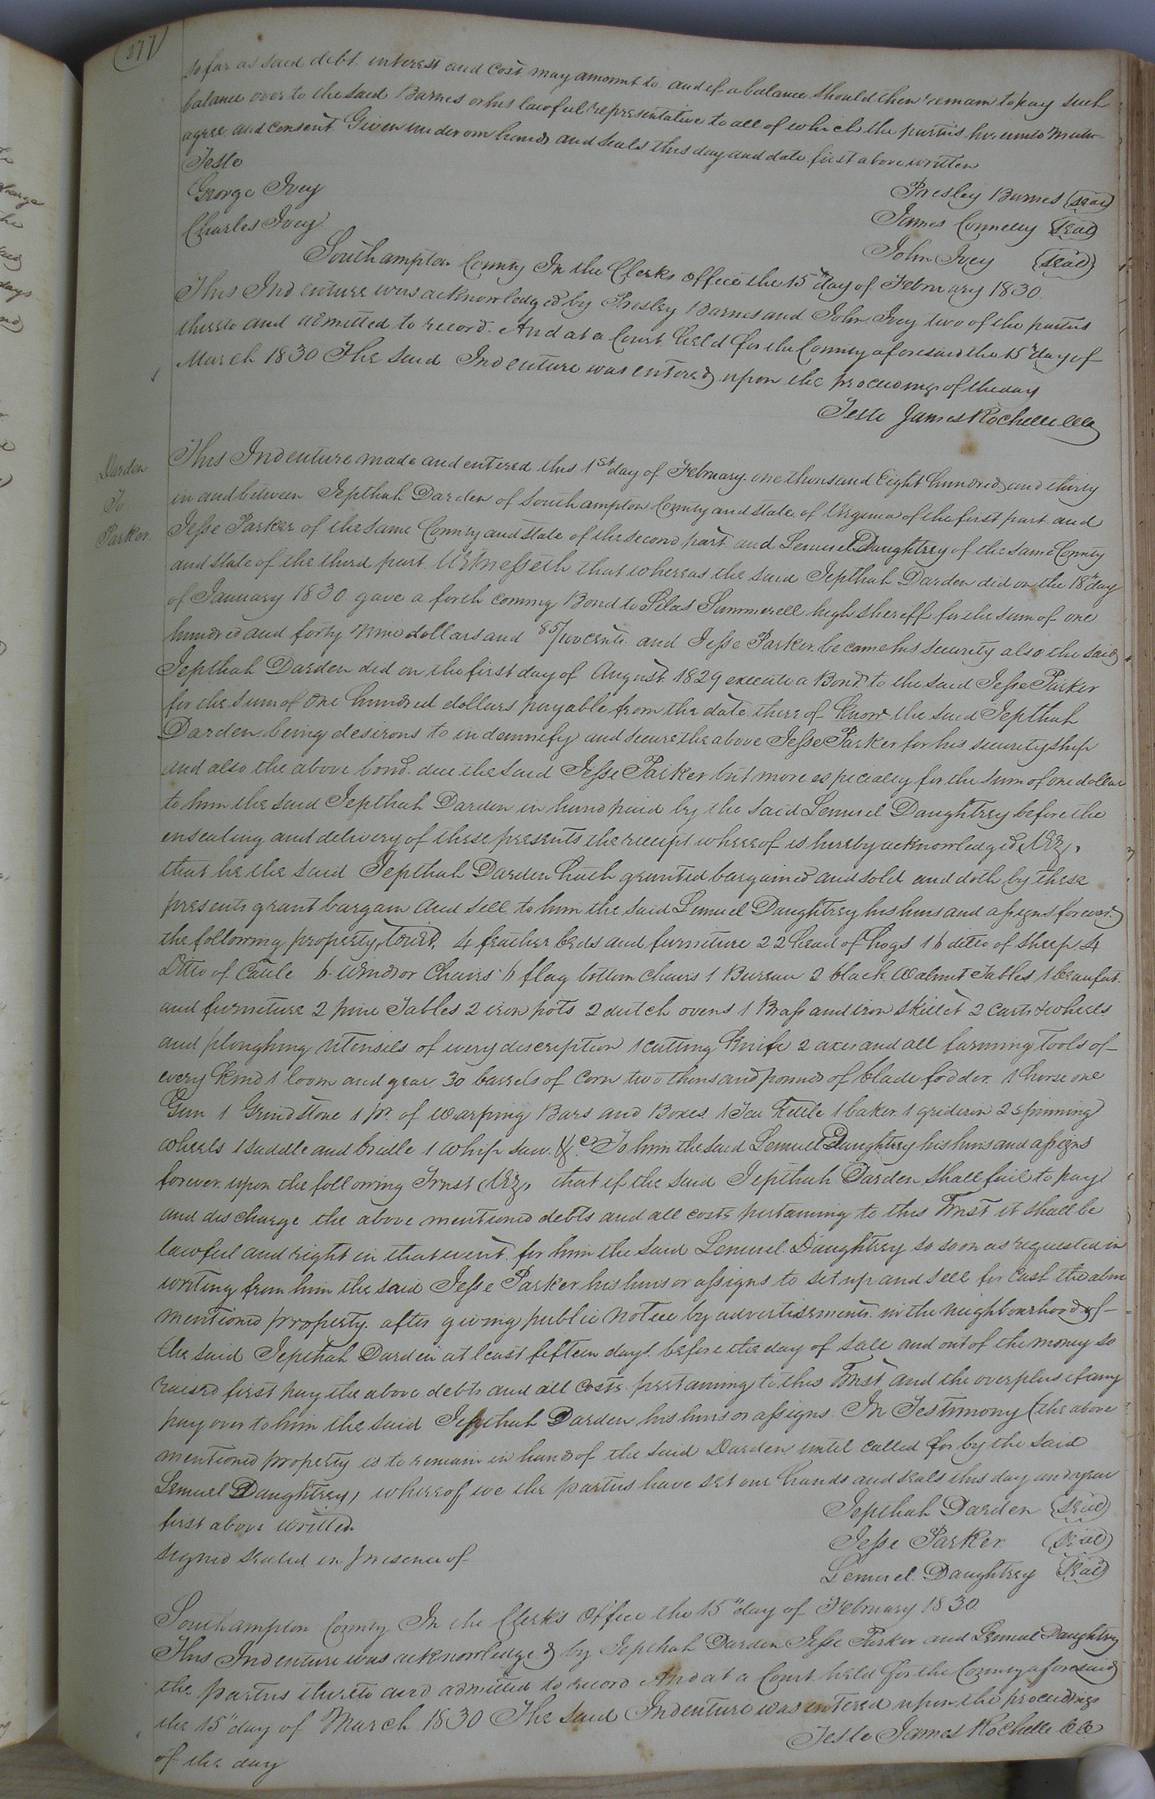 377
so far as said debt interest and cost may amount to and if a balance should then remain to pay such
balance over to the said Barnes or his lawful representative to all of which the parties hereunto mutu-
agree and consent Given under our hands and seals this day and date first above written
Teste
George Ivey
Presley Barnes (seal)
Charles Ivey
James Connelly (seal)
John Ivey (seal)
Southampton County In the Clerks office the 15th day of February 1830
This Indenture was acknowledged by Presley Barnes and John Ivey two of the parties
thereto and admitted to record. And at a Court held for the County aforesaid the 15th day of
March 1830 The said Indenture was entered upon the proceedings of the day
Teste James Rochelle CC
Darden
To
Parker
This Indenture made and entered this 1st day of February one thousand Eight hundred and thirty
in and between Jepthah Darden of Southampton County and state of Virginia of the first part and
Jesse Parker of the same County and state of the second part and Lemuel Daughtrey of the same County
and state of the third part Witnesseth that whereas the said Jepthah Darden did on the 18th day
of January 1830 gave a forth coming Bond to Silas Summerell high sheriff for the sum of one
hundred and forty nine dollars and 85/100 cents and Jesse Parker became his security also the said
Jepthah Darden did on the first day of August 1829 execute a Bond to the said Jesse Parker
for the sum of One hundred dollars payable from the date there of Know the said Jepthah
Darden being desirous to indemnify and secure the above Jesse Parker for his securityship
and also the above bond due the said Jesse Parker but more especially for the sum of one dollar
to him the said Jepthah Darden in hand paid by the said Lemuel Daughtrey before the
ensealing and delivery of these presents the receipt whereof is hereby acknowledged, Viz,
that he the said Jepthah Darden hath granted bargained and sold and doth by these
presents grant bargain and sell to him the said Lemuel Daughtrey his heirs and assigns forever
the following property, towit, 4 feather beds and furniture 22 head of hogs 16 ditto of sheep 4
Ditto of Cattle 6 Windsor Chairs 6 flag bottom chairs 1 Bureau 2 black Walnut Tables 1 beaufat
and furniture 2 pine Tables 2 iron pots 2 dutch ovens 1 Brass and iron skillet 2 carts & wheels
and ploughing utensils of every description 1 cutting Knife 2 axes and all farming Tools of
every kind 1 loom and gear 30 barrels of corn two thousand pounds of blade fodder 1 horse one
Gun 1 Grindstone 1 pr. of warping Bars and Boxes 1 Tea Kettle 1 baker 1 gridirin 2 spinning
wheels 1 saddle and bridle 1 whip saw &c. To him the said Lemuel Daughtrey his heirs and assigns
forever upon the following Trust, Viz, that if the said Jepthah Darden shall fail to pay
and discharge the above mentioned debts and all costs pertaining to this Trust it shall be
lawful and right in that event for him the said Lemuel Daughtrey so soon as requested in
writing from him the said Jesse Parker his heirs or assigns to set up and sell for Cash the above
mentioned property after giving public notice by advertisements in the neighbourhood of
the said Jepthah Darden at least fifteen days before the day of sale and out of the money so
raised first pay the above debts and all costs pertaining to this Trust and the overplus if any
pay over to him the said Jepthah Darden his heirs or assigns In Testimony (the above
mentioned property is to remain in hand of the said Darden until called for by the said
Lemuel Daughtrey) whereof we the parties have set our hands and seals this day and year
first above written
Jepthah Darden (seal)
signed sealed in presence of
Jesse Parker (seal)
Lemuel Daughtrey (seal)
Southampton County In the Clerk's office the 15th day of February 1830
This Indenture was acknowledged by Jepthah Darden Jesse Parker and Lemuel Daughtrey
the parties thereto and admitted to record And at a Court held for the County aforesaid
the 15th day of March 1830 The said Indenture was entered upon the proceedings
of the day
Teste James Rochelle CC